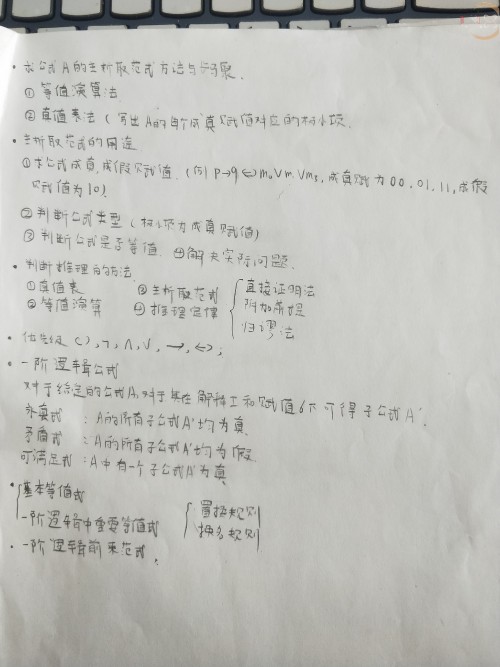 · 求公式A的主析取范式方法与步骤.
① 等值演算法
② 真值表法(写出A的每个成真赋值对应的极小项.
· 主析取范式的用途
①求公式成真,成假赋值.(例 P→q⇔m₀∨m₁∨m₃,成真赋为00.01.11,成假
赋值为10).
②判断公式类型(极小项为成真赋值)
③ 判断公式是否等值. ④解决实际问题.
· 判断推理的方法
①真值表 ③主析取范式 直接证明法
②等值演算 ④推理定律 附加前提
归谬法
· 优先级(),¬,∧,∨,→,↔;
· 一阶逻辑公式
对于给定的公式A,对于其在解释I和赋值6下可得子公式A'.
永真式 :A的所有子公式A'均为真.
矛盾式 :A的所有子公式A'均为假.
可满足式:A中有一个子公式A'为真
· 基本等值式
一阶逻辑中重要等值式 置换规则
换名规则
· 一阶逻辑前束范式.